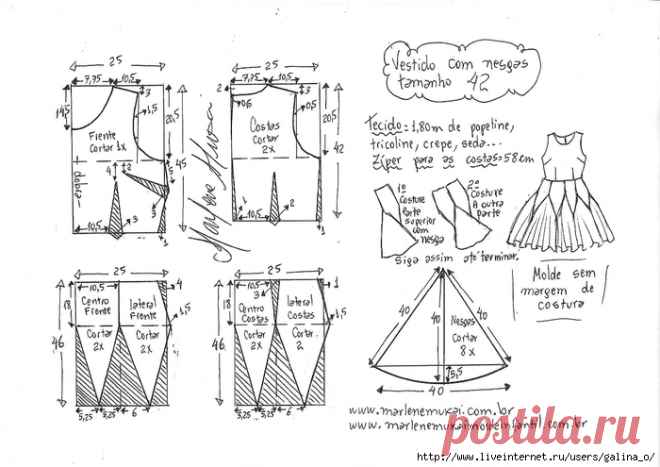 Vestido com nesgas
tamanho 42
Tecido = 1,80m de popeline,
tricoline, crepe, seda...
Zíper para as costas = 58cm
1º
Costure
Parte
superior
com
nesga
2º
Costure
A outra
parte
Siga assim até terminar.
Molde sem
margem de
costura
25
7,75
10,5
3
14,5
1,5
20,5
45
Frente
Cortar 1x
dobra
4
5
3
2
10,5
3
1
Marlene Mukai
25
7,75
10,5
2
3
0,6
0,5
20,5
42
Costas
Cortar
2x
10,5
2
1
25
10,5
4
18
1,5
46
Centro
Frente
lateral
Frente
Cortar
2x
Cortar
2x
5,25
5,25
6
25
10,5
1
3
18
1,5
46
Centro
Costas
lateral
Costas
Cortar
2x
Cortar
2
5,25
5,25
6
40
40
40
Nesgas
Cortar
8x
5,5
40
www.marlenemukai.com.br
www.marlenemukaimodeinfantil.com.br
postila.ru
http://www.liveinternet.ru/users/galina_o/